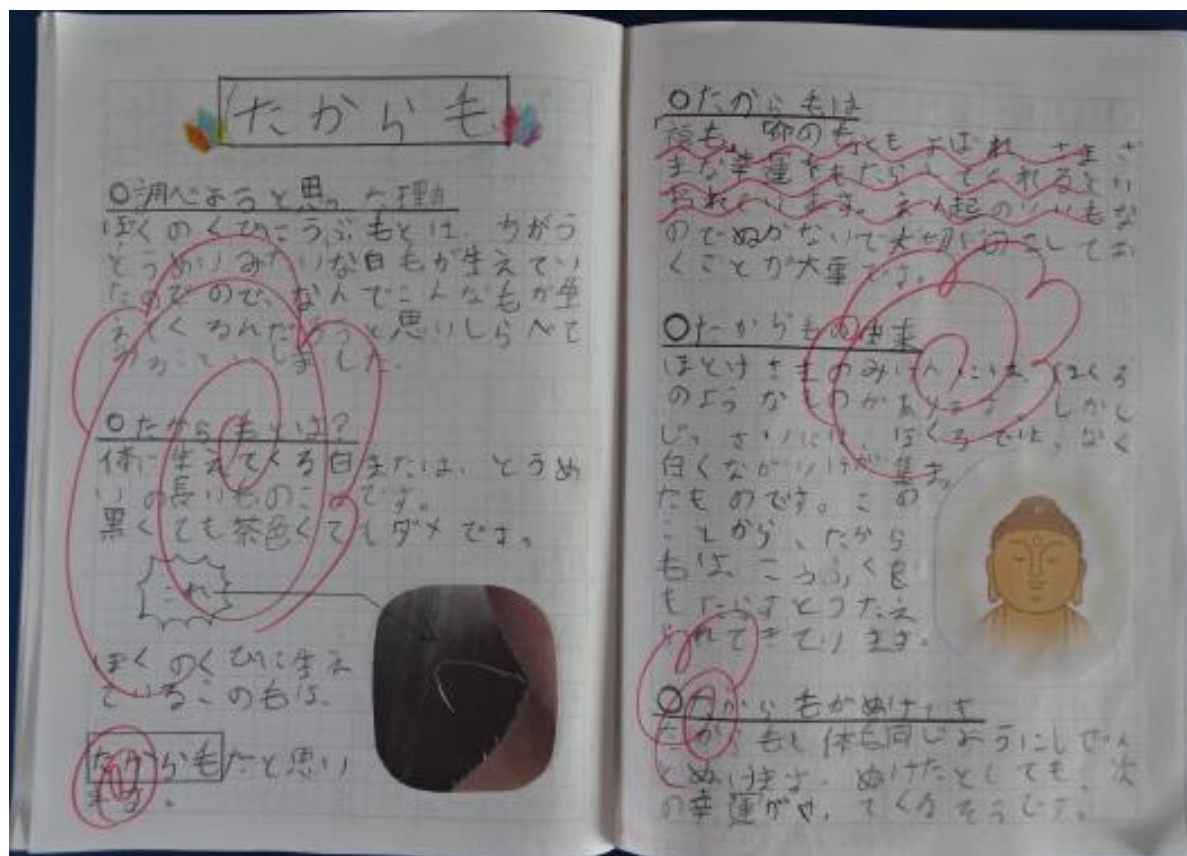 たから毛
○調べようと思った理由
ぼくのくびこうぶもとは、ちがう
とうめいみたいな白毛が生えてい
たのでので、なんでこんなもが生
えてくるんだろうと思いしらべて
みることにしました。
○たから毛とは?
体に生えてくる白または、とうめ
いの長いもののことです。
黒くても茶色くてもダメです。
これ
ぼくのくびに生え
ているこの毛は、
たから毛だと思い
ます。
○たから毛は
「福も」「命のも」ともよばれ、さまざ
まな幸運をもたらしてくれるとい
われています。えん起のいいもな
のでぬかないで大切にのこしてお
くことが大事です。
○たからもの由来
ほとけさまのみけんには、ほくろ
のようなものがあります。しかし
じっさいには、ほくろでは、なく
白くながいけが集まっ
たものです。この
ことから、たから
もは、こうふくを
もたらすとうたえ
られてきています。
○たから毛がぬけても
たからもも体も同じようにしぜん
とぬけます。ぬけたとしても、次
の幸運がやってくるそうです。